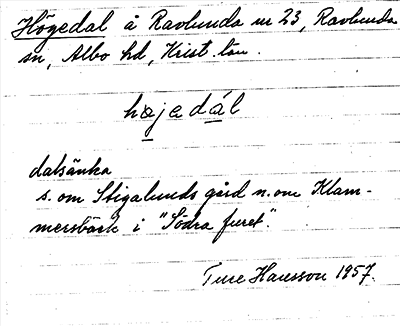 Högedal å Ravlunda nr 23, Ravlunda
sn, Albo hd, Krist. län.
højedál
dalsänka
s. om Stigalunds gård n. om Klam-
mersbäck i "Södra furet".
Ture Hansson 1957.